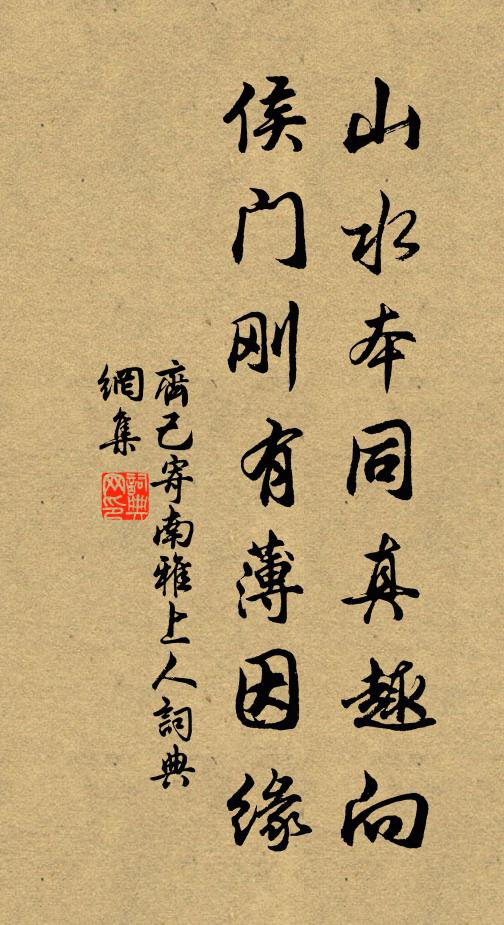 山水本同真趣向
侯门刚有薄因缘
齊己寄南雅上人詞典
網集
詞典
网印